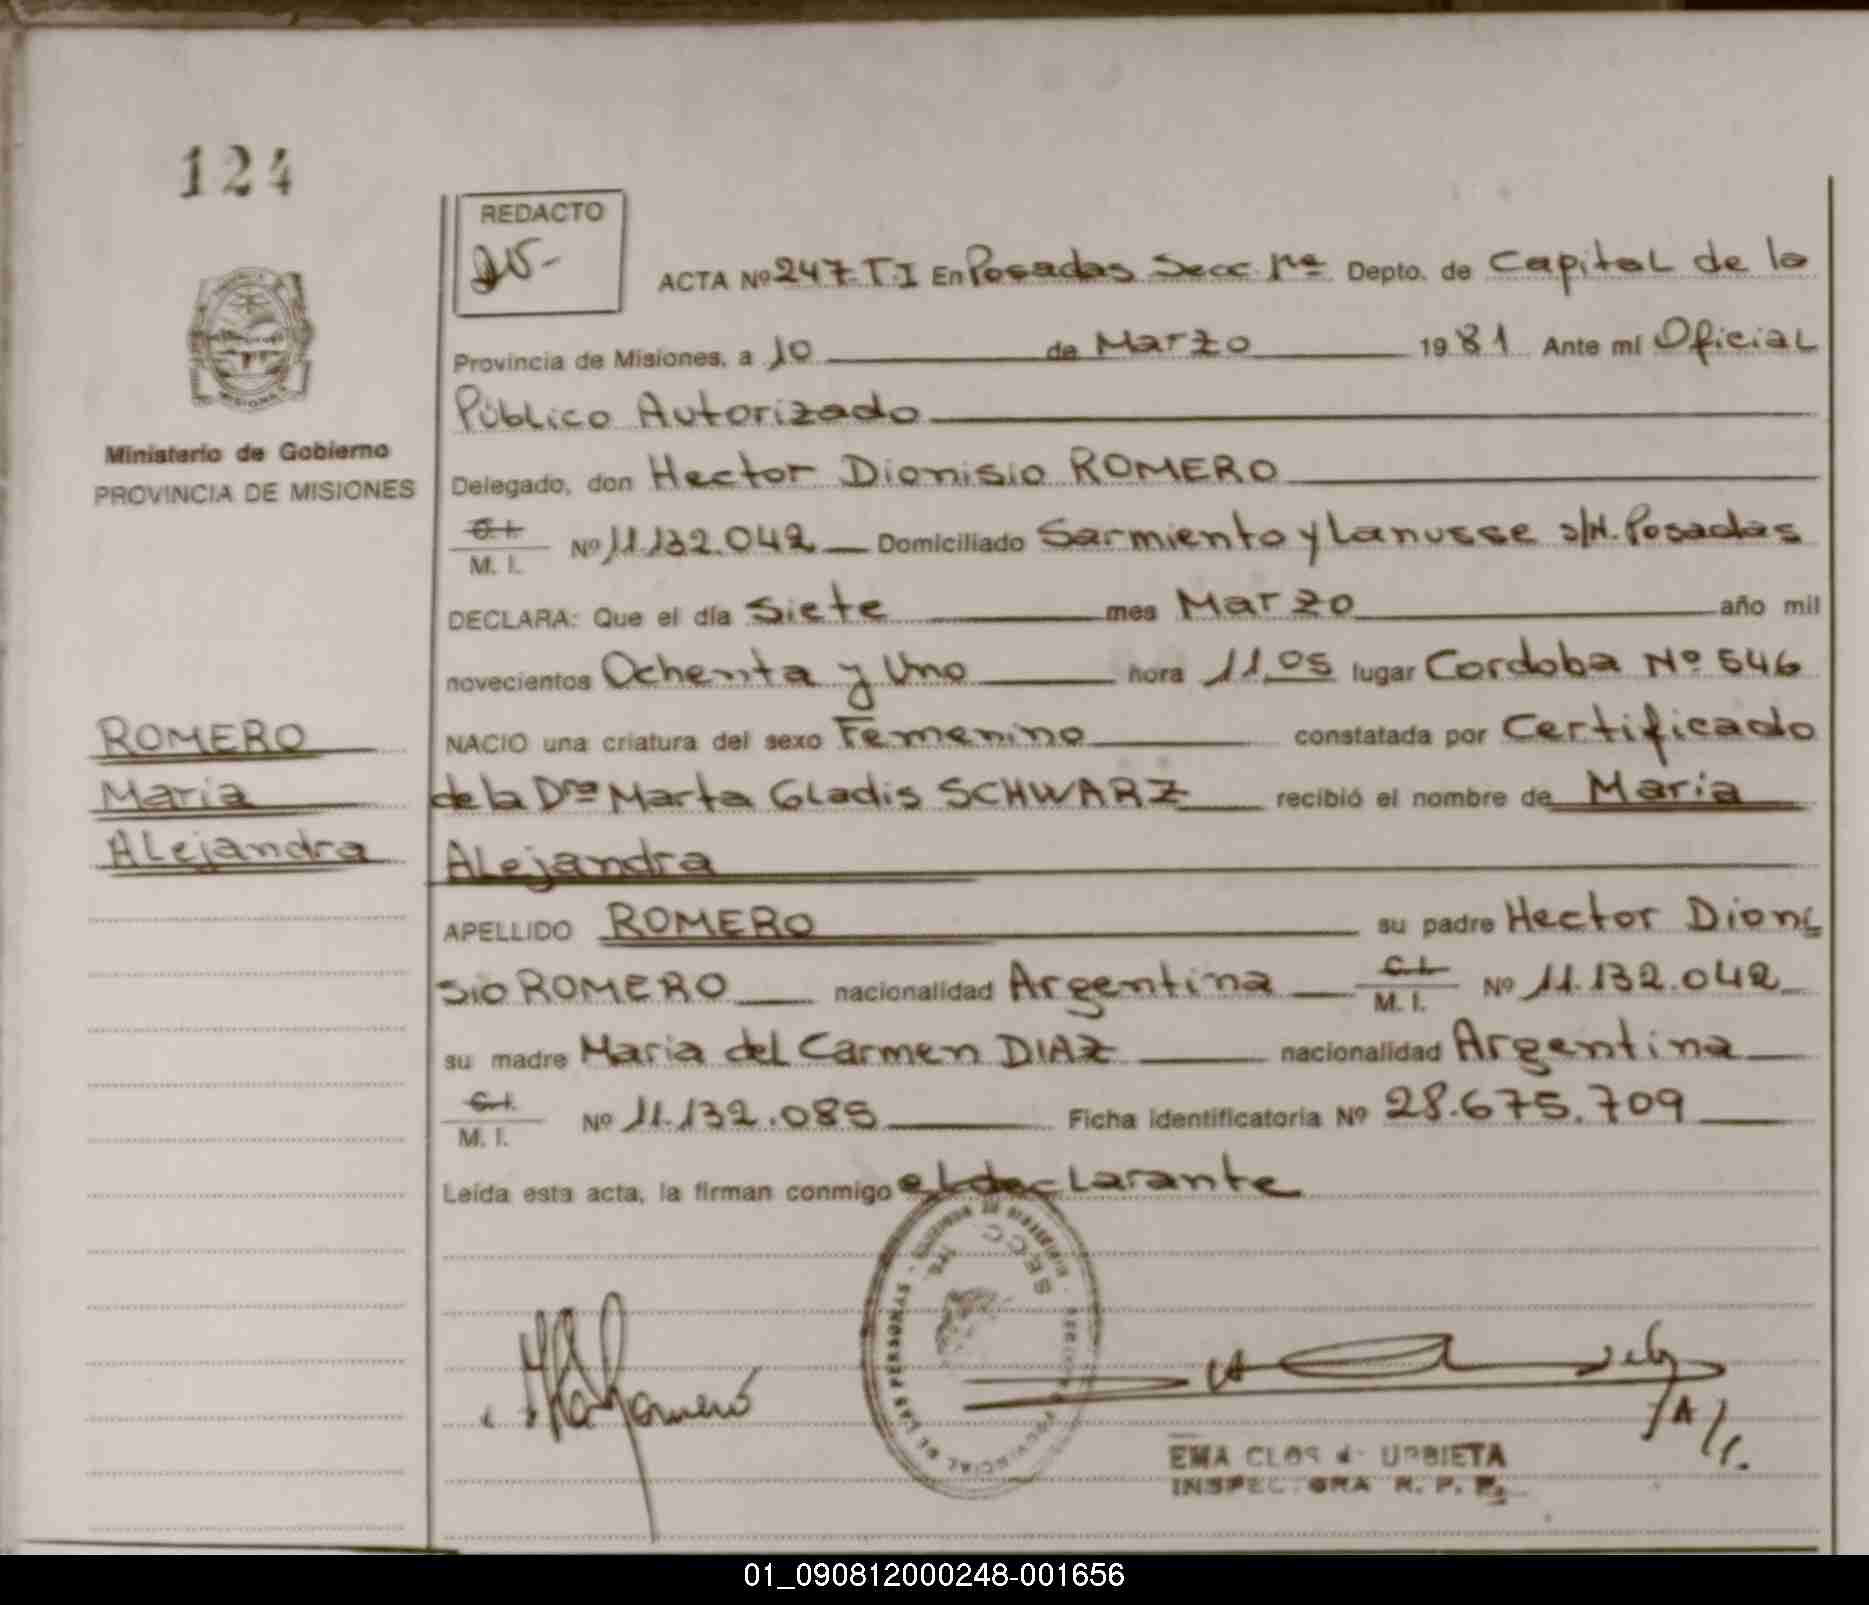 124
REDACTO
ACTA Nº 247 T I En Posadas Secc. 1ra Depto. de Capital de la
Provincia de Misiones, a 10 de Marzo 1981 Ante mí Oficial
Público Autorizado
Ministerio de Gobierno
PROVINCIA DE MISIONES
Delegado, don Hector Dionisio ROMERO
C.I. M. I. Nº 11.132.042 Domiciliado Sarmiento y Lanusse s/N. Posadas
DECLARA: Que el día Siete mes Marzo año mil
novecientos Ochenta y Uno hora 11,05 lugar Cordoba Nº 546
ROMERO
Maria
Alejandra
NACIO una criatura del sexo Femenino constatada por Certificado
de la Dra Marta Gladis SCHWARZ recibió el nombre de Maria
Alejandra
APELLIDO ROMERO su padre Hector Dioni
sio ROMERO nacionalidad Argentina C.I. M. I. Nº 11.132.042
su madre Maria del Carmen DIAZ nacionalidad Argentina
C.I. M. I. Nº 11.132.085 Ficha identificatoria Nº 28.675.709
Leída esta acta, la firman conmigo el declarante
PROVINCIAL DE LAS PERSONAS
SECC
EMA CLOS de URBIETA
INSPECTORA R. P. P.
01_090812000248-001656